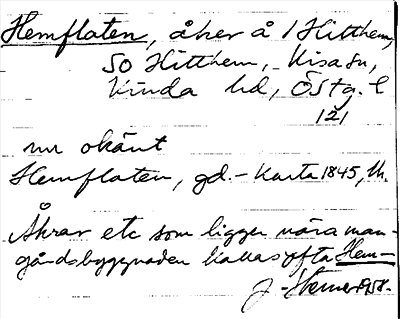 Hemflaten, åker å 1 Hitthem,
SO Hitthem, Kisa sn,
Kinda hd, Östg. l
121
nu okänt
Hemflaten, gd. - Karta 1845,
Åkrar etc som ligger nära man-
gårdsbyggnaden kallas ofta Hem-
J. Sterner 1958.